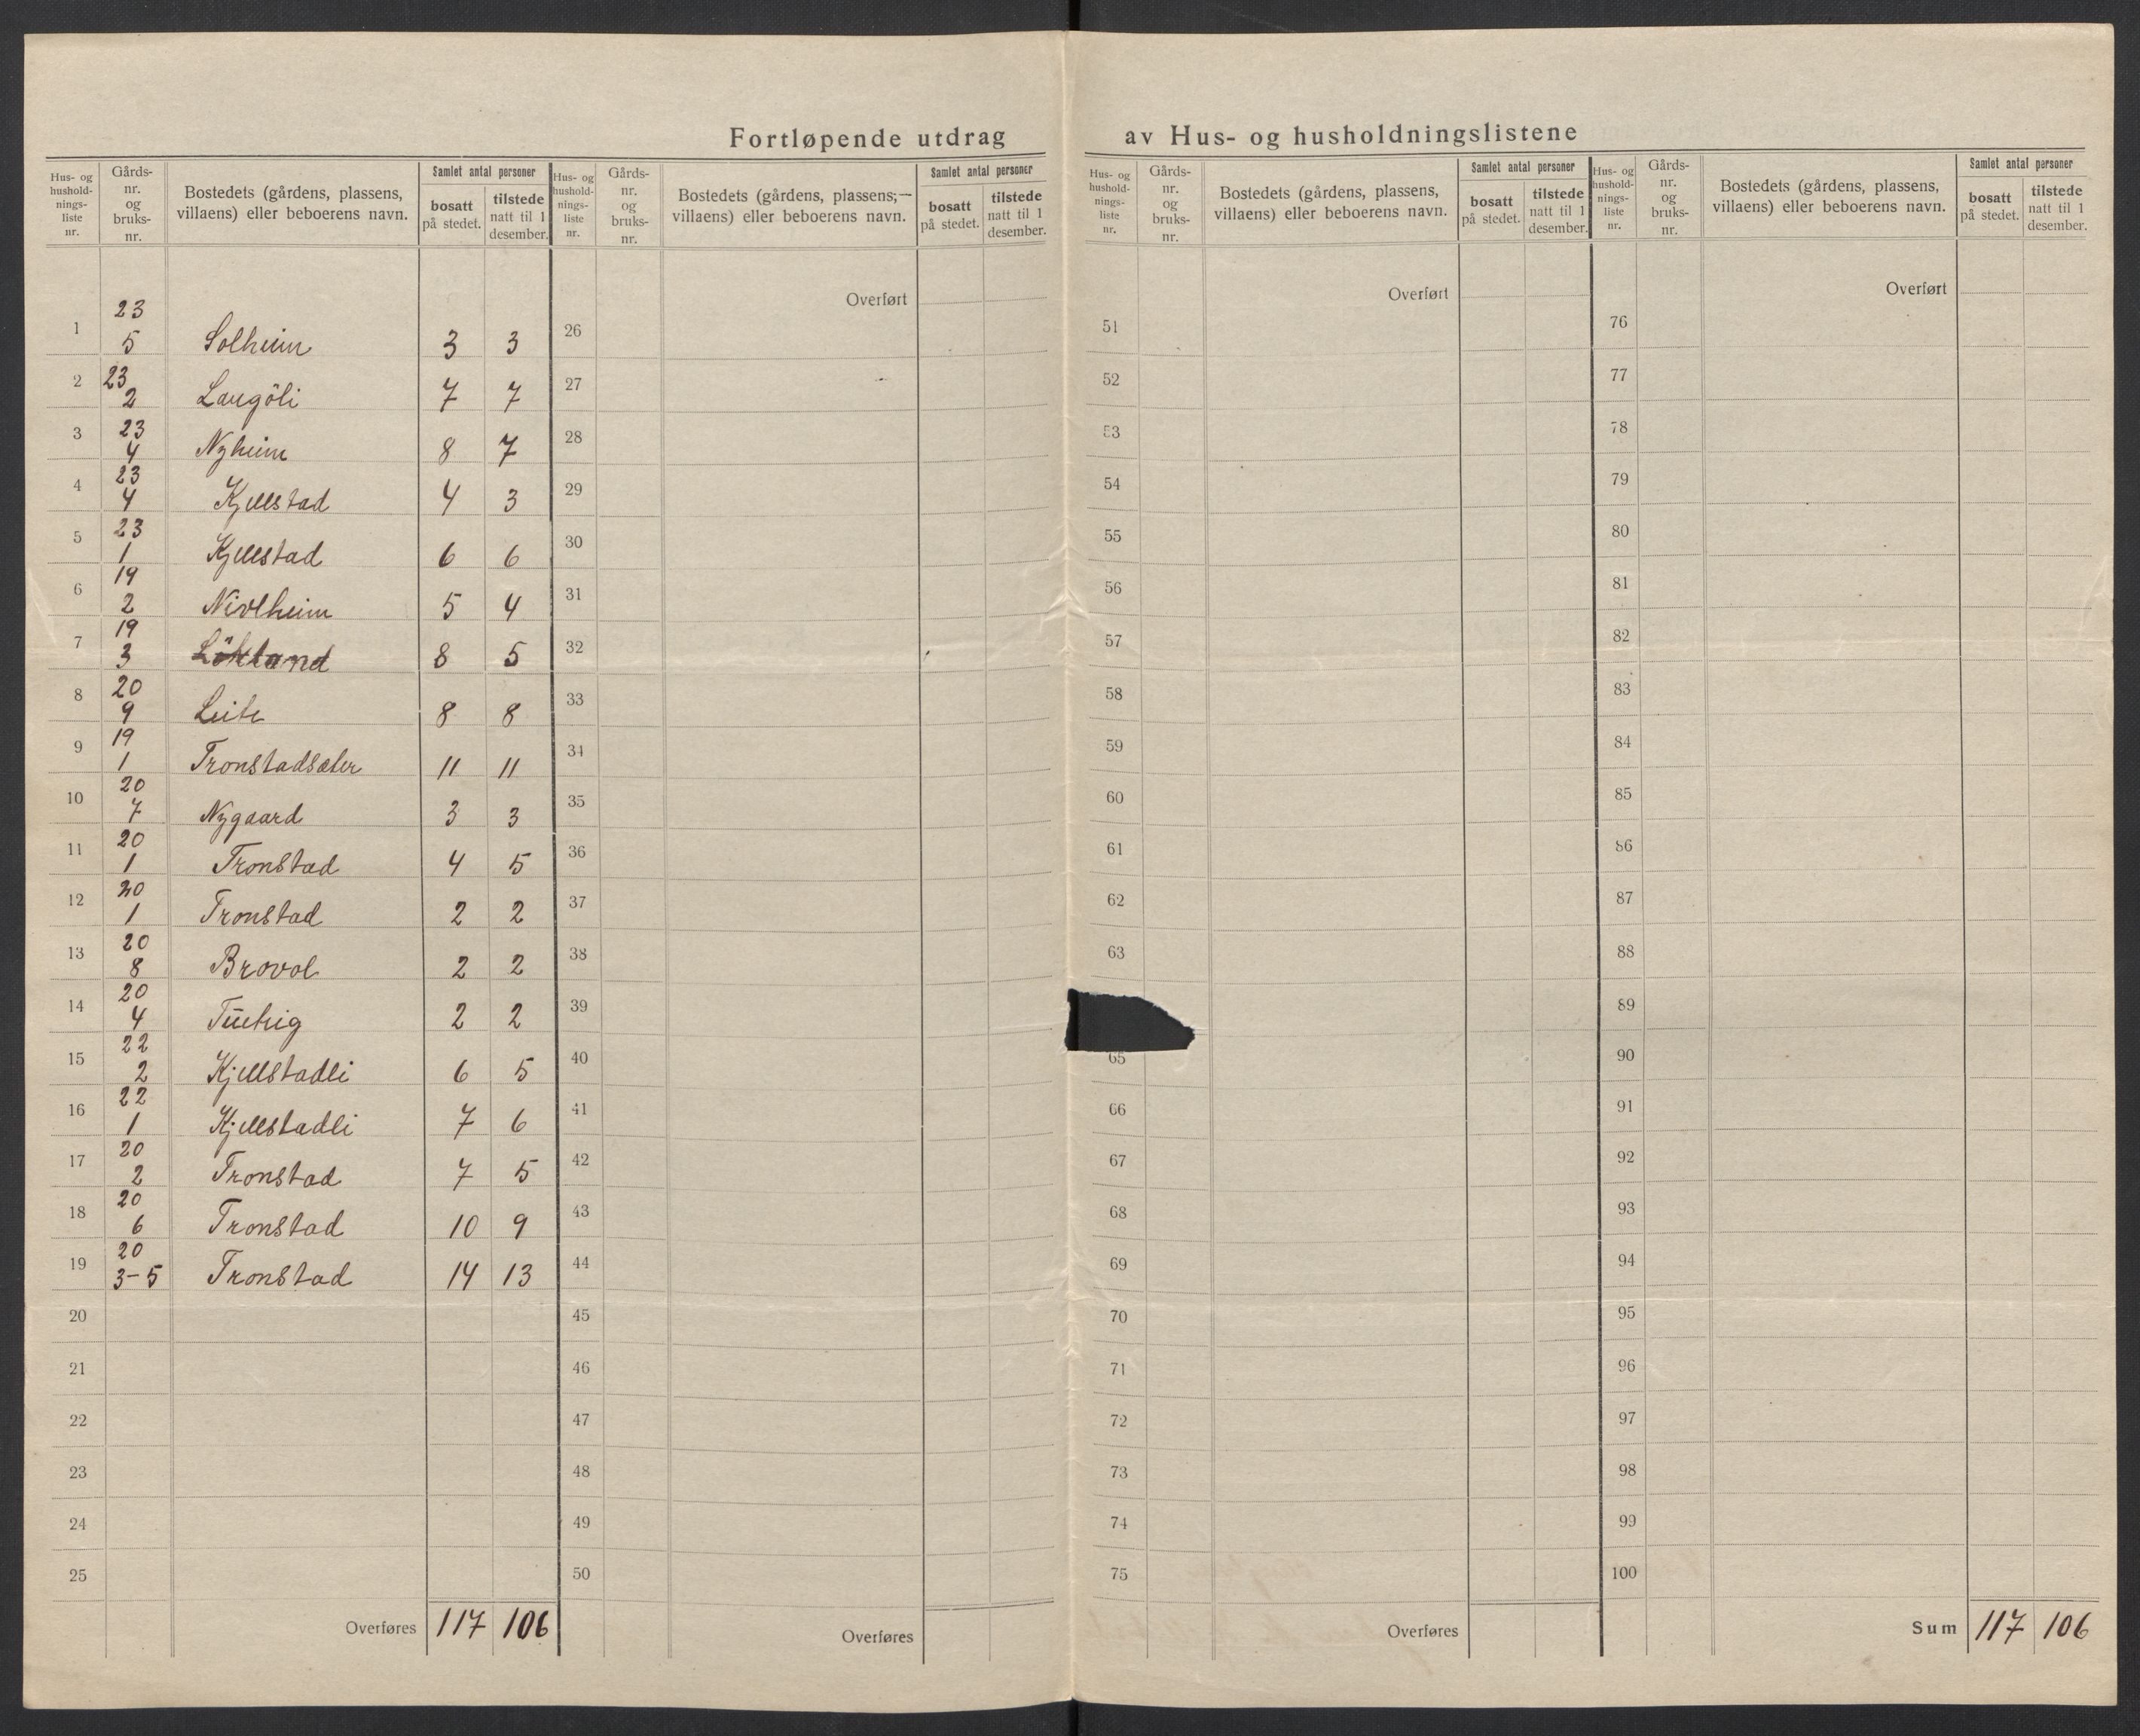 Fortløpende utdrag av Hus- og husholdningslistene
Hus- og hushold-nings-liste nr. | Gårds-nr. og bruks-nr. | Bostedets (gårdens, plassens, villaens) eller beboerens navn. | Samlet antal personer | bosatt på stedet. | tilstede natt til 1 desember.
Hus- og hushold-nings-liste nr. | Gårds-nr. og bruks-nr. | Bostedets (gårdens, plassens, villaens) eller beboerens navn. | Samlet antal personer | bosatt på stedet. | tilstede natt til 1 desember.
Hus- og hushold-nings-liste nr. | Gårds-nr. og bruks-nr. | Bostedets (gårdens, plassens, villaens) eller beboerens navn. | Samlet antal personer | bosatt på stedet. | tilstede natt til 1 desember.
Hus- og hushold-nings-liste nr. | Gårds-nr. og bruks-nr. | Bostedets (gårdens, plassens, villaens) eller beboerens navn. | Samlet antal personer | bosatt på stedet. | tilstede natt til 1 desember.
1 23 5 Solheim 3 3
2 23 2 Laugöli 7 7
3 23 4 Nyheim 8 7
4 23 4 Kjellstad 4 3
5 23 1 Kjellstad 6 6
6 19 2 Nivlheim 5 4
7 19 3 Lökland 8 5
8 20 9 Leite 8 8
9 19 1 Tronstadsæter 11 11
10 20 7 Nygaard 3 3
11 20 1 Tronstad 4 5
12 20 1 Tronstad 2 2
13 20 8 Brovol 2 2
14 20 4 2 2
15 22 2 Kjellstadli 6 5
16 22 1 Kjellstadli 7 6
17 20 2 Tronstad 7 5
18 20 6 Tronstad 10 9
19 20 3-5 Tronstad 14 13
20
21
22
23
24
25
Overføres 117 106
Overført
26
27
28
29
30
31
32
33
34
35
36
37
38
39
40
41
42
43
44
45
46
47
48
49
50
Overføres
Overført
51
52
53
54
55
56
57
58
59
60
61
62
63
65
66
67
68
69
70
71
72
73
74
75
Overføres
Overført
76
77
78
79
80
81
82
83
84
85
86
87
88
89
90
91
92
93
94
95
96
97
98
99
100
Sum 117 106